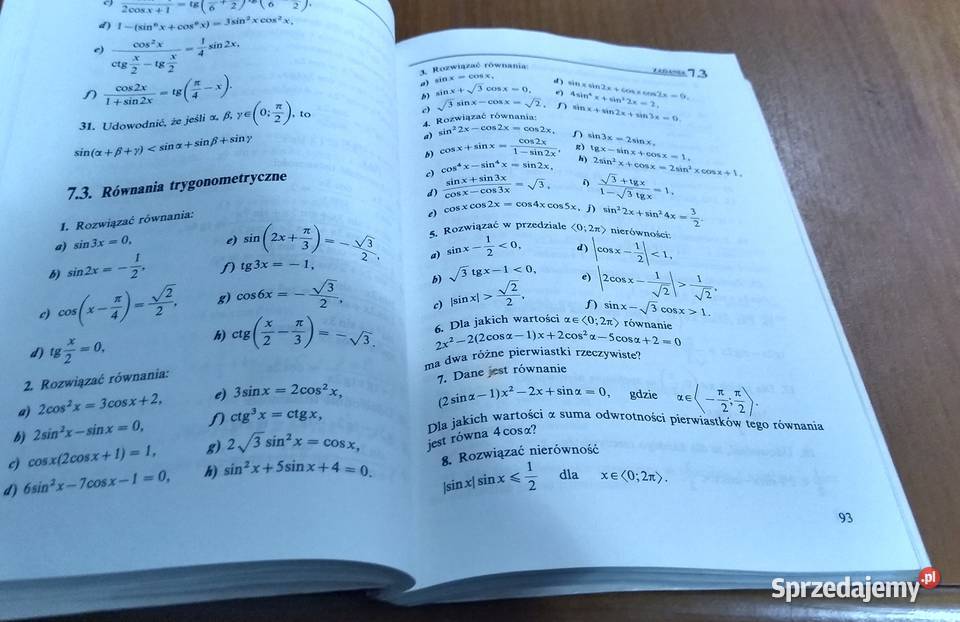 c) 2cosx+1 = tg(6 + 2) tg(6 − 2),
d) 1−(sin⁶x+cos⁶x) = 3sin²x cos²x,
e) cos²x / (ctg x/2 − tg x/2) = 1/4 sin2x,
f) cos2x / (1+sin2x) = tg(π/4 − x).
31. Udowodnić, że jeśli α, β, γ∈(0; π/2), to
sin(α+β+γ) < sinα+sinβ+sinγ
7.3. Równania trygonometryczne
1. Rozwiązać równania:
a) sin3x = 0,
b) sin2x = −1/2,
c) cos(x − π/4) = √2/2,
d) tg x/2 = 0,
e) sin(2x + π/3) = −√3/2,
f) tg3x = −1,
g) cos6x = −√3/2,
h) ctg(x/2 − π/3) = −√3.
2. Rozwiązać równania:
a) 2cos²x = 3cosx+2,
b) 2sin²x−sinx = 0,
c) cosx(2cosx+1) = 1,
d) 6sin²x−7cosx−1 = 0,
e) 3sinx = 2cos²x,
f) ctg³x = ctgx,
g) 2√3 sin²x = cosx,
h) sin²x+5sinx+4 = 0.
ZADANIA 7.3
3. Rozwiązać równania:
a) sinx = cosx,
b) sinx+√3 cosx = 0,
c) √3 sinx−cosx = √2,
d) sinx sin2x+cosx cos2x = 0,
e) 4sin⁴x+sin²2x = 2,
f) sinx+sin2x+sin3x = 0.
4. Rozwiązać równania:
a) sin²2x−cos2x = cos2x,
b) cosx+sinx = cos2x / (1−sin2x),
c) cos⁴x−sin⁴x = sin2x,
d) (sinx+sin3x) / (cosx−cos3x) = √3,
e) cosx cos2x = cos4x cos5x,
f) sin3x = 2sinx,
g) tgx−sinx+cosx = 1,
h) 2sin²x+cosx = 2sin²x cosx+1,
i) (√3+tgx) / (1−√3 tgx) = 1,
j) sin²2x+sin²4x = 3/2.
5. Rozwiązać w przedziale ⟨0; 2π⟩ nierówności:
a) sinx − 1/2 < 0,
b) √3 tgx−1 < 0,
c) |sinx| > √2/2,
d) |cosx − 1/2| < 1,
e) |2cosx − 1/√2| > 1/√2,
f) sinx−√3 cosx > 1.
6. Dla jakich wartości α∈⟨0; 2π⟩ równanie
2x²−2(2cosα−1)x+2cos²α−5cosα+2 = 0
ma dwa różne pierwiastki rzeczywiste?
7. Dane jest równanie
(2sinα−1)x²−2x+sinα = 0, gdzie α∈⟨−π/2; π/2⟩.
Dla jakich wartości α suma odwrotności pierwiastków tego równania
jest równa 4cosα?
8. Rozwiązać nierówność
|sinx| sinx ⩽ 1/2 dla x∈⟨0; 2π⟩.
93
Sprzedajemy.pl